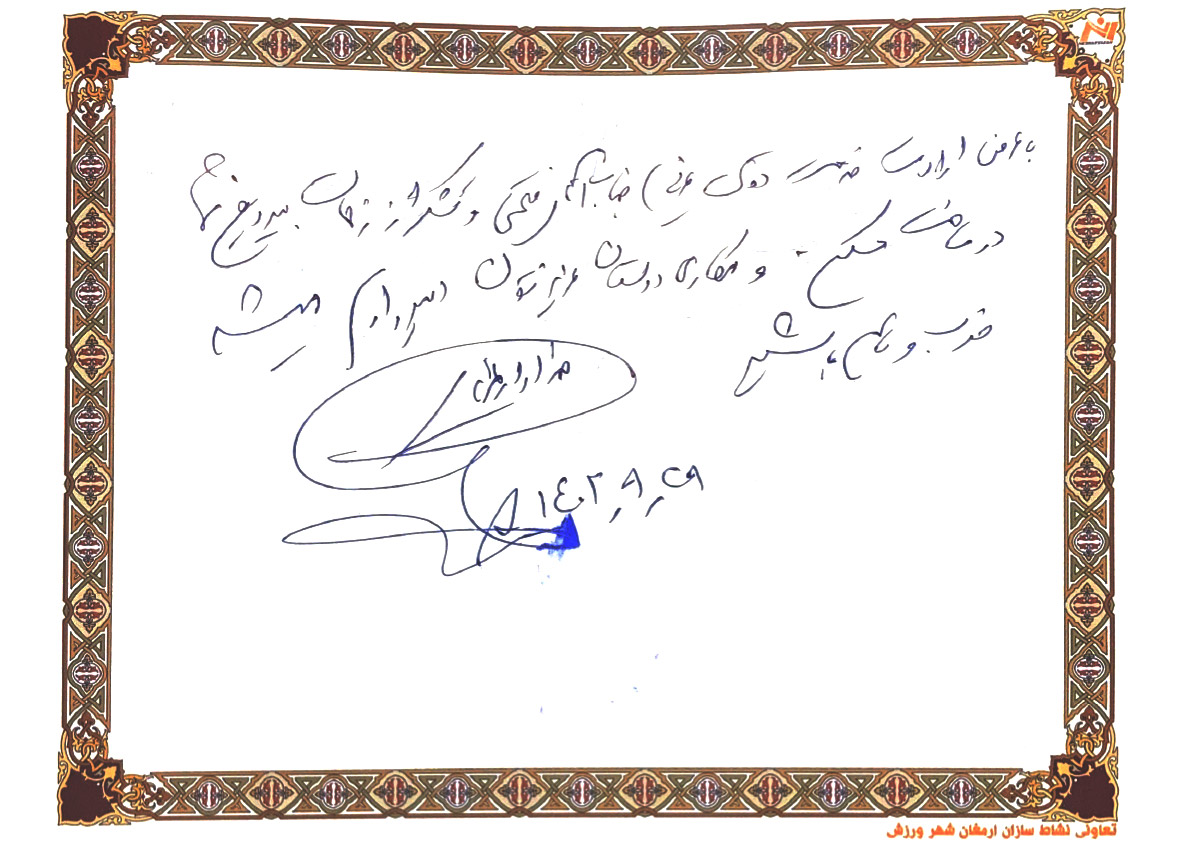 با عرض ارادت خدمت دوست عزیز جناب آقای و تشکر از زحمات بیدریغ شما
در ساخت و همکاری دوستان عزیزتون امیدوارم همیشه
خوب و سالم باشید
۱۴۰۲٫۹٫۲۹
تعاونی نشاط سازان ارمغان شهر ورزش